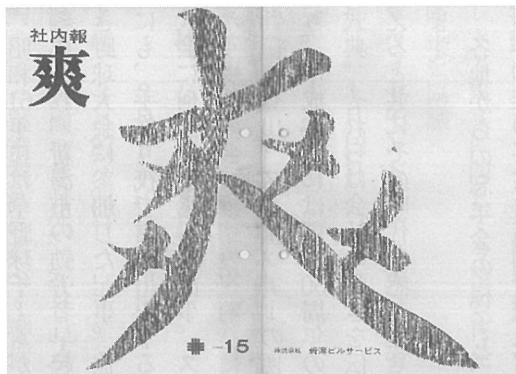 社内報
爽
爽
-15
株式会社 ビルサービス